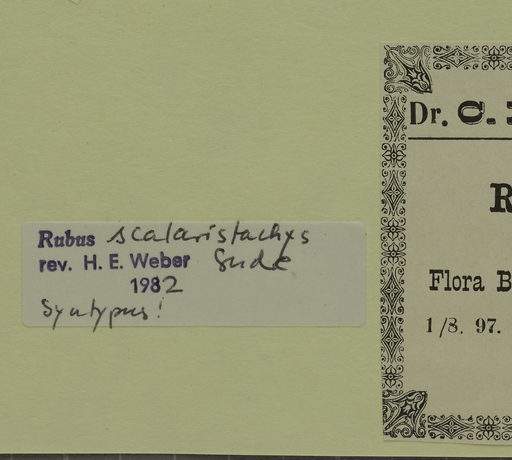 Rubus scalaristachys
rev. H. E. Weber Sude
1982
Syntypus!
Dr. C.
R
Flora B
1/8. 97.